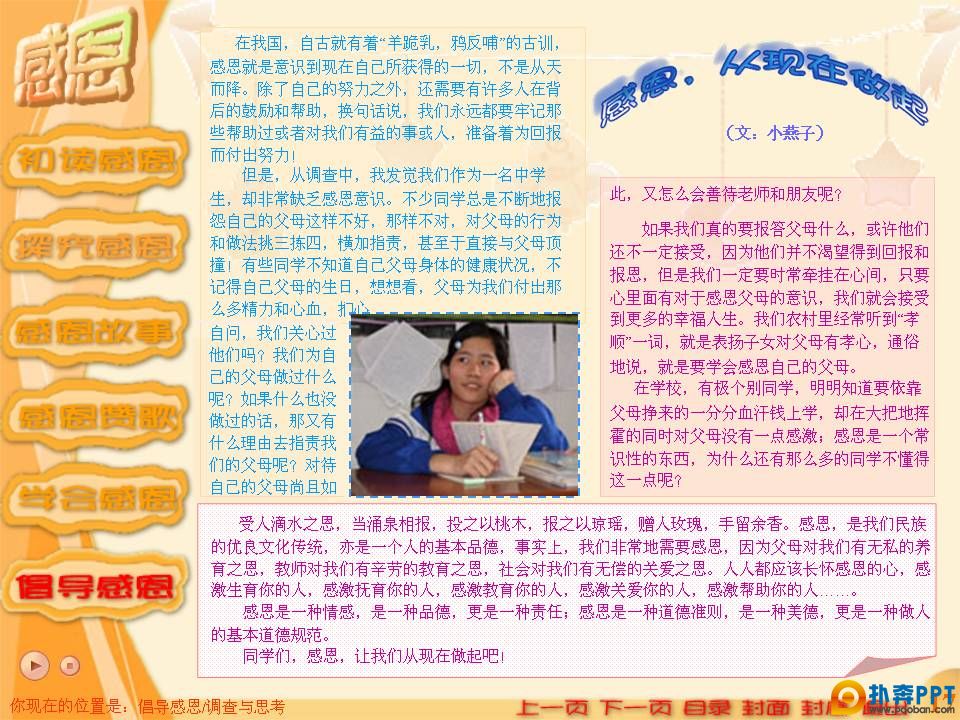 感恩
初读感恩
探究感恩
感恩故事
感恩赞歌
学会感恩
倡导感恩
在我国，自古就有着“羊跪乳，鸦反哺”的古训，
感恩就是意识到现在自己所获得的一切，不是从天
而降。除了自己的努力之外，还需要有许多人在背
后的鼓励和帮助，换句话说，我们永远都要牢记那
些帮助过或者对我们有益的事或人，准备着为回报
而付出努力！
但是，从调查中，我发觉我们作为一名中学
生，却非常缺乏感恩意识。不少同学总是不断地报
怨自己的父母这样不好，那样不对，对父母的行为
和做法挑三拣四，横加指责，甚至于直接与父母顶
撞！有些同学不知道自己父母身体的健康状况，不
记得自己父母的生日，想想看，父母为我们付出那
么多精力和心血，扪心
自问，我们关心过
他们吗？我们为自
己的父母做过什么
呢？如果什么也没
做过的话，那又有
什么理由去指责我
们的父母呢？对待
自己的父母尚且如
感恩，从现在做起
（文：小燕子）
此，又怎么会善待老师和朋友呢？
如果我们真的要报答父母什么，或许他们
还不一定接受，因为他们并不渴望得到回报和
报恩，但是我们一定要时常牵挂在心间，只要
心里面有对于感恩父母的意识，我们就会接受
到更多的幸福人生。我们农村里经常听到“孝
顺”一词，就是表扬子女对父母有孝心，通俗
地说，就是要学会感恩自己的父母。
在学校，有极个别同学，明明知道要依靠
父母挣来的一分分血汗钱上学，却在大把地挥
霍的同时对父母没有一点感激；感恩是一个常
识性的东西，为什么还有那么多的同学不懂得
这一点呢？
受人滴水之恩，当涌泉相报，投之以桃木，报之以琼瑶，赠人玫瑰，手留余香。感恩，是我们民族
的优良文化传统，亦是一个人的基本品德，事实上，我们非常地需要感恩，因为父母对我们有无私的养
育之恩，教师对我们有辛劳的教育之恩，社会对我们有无偿的关爱之恩。人人都应该长怀感恩的心，感
激生育你的人，感激抚育你的人，感激教育你的人，感激关爱你的人，感激帮助你的人……。
感恩是一种情感，是一种品德，更是一种责任；感恩是一种道德准则，是一种美德，更是一种做人
的基本道德规范。
同学们，感恩，让我们从现在做起吧！
你现在的位置是：倡导感恩/调查与思考
上一页 下一页 目录 封面 封底
扑奔PPT
www.pooban.com